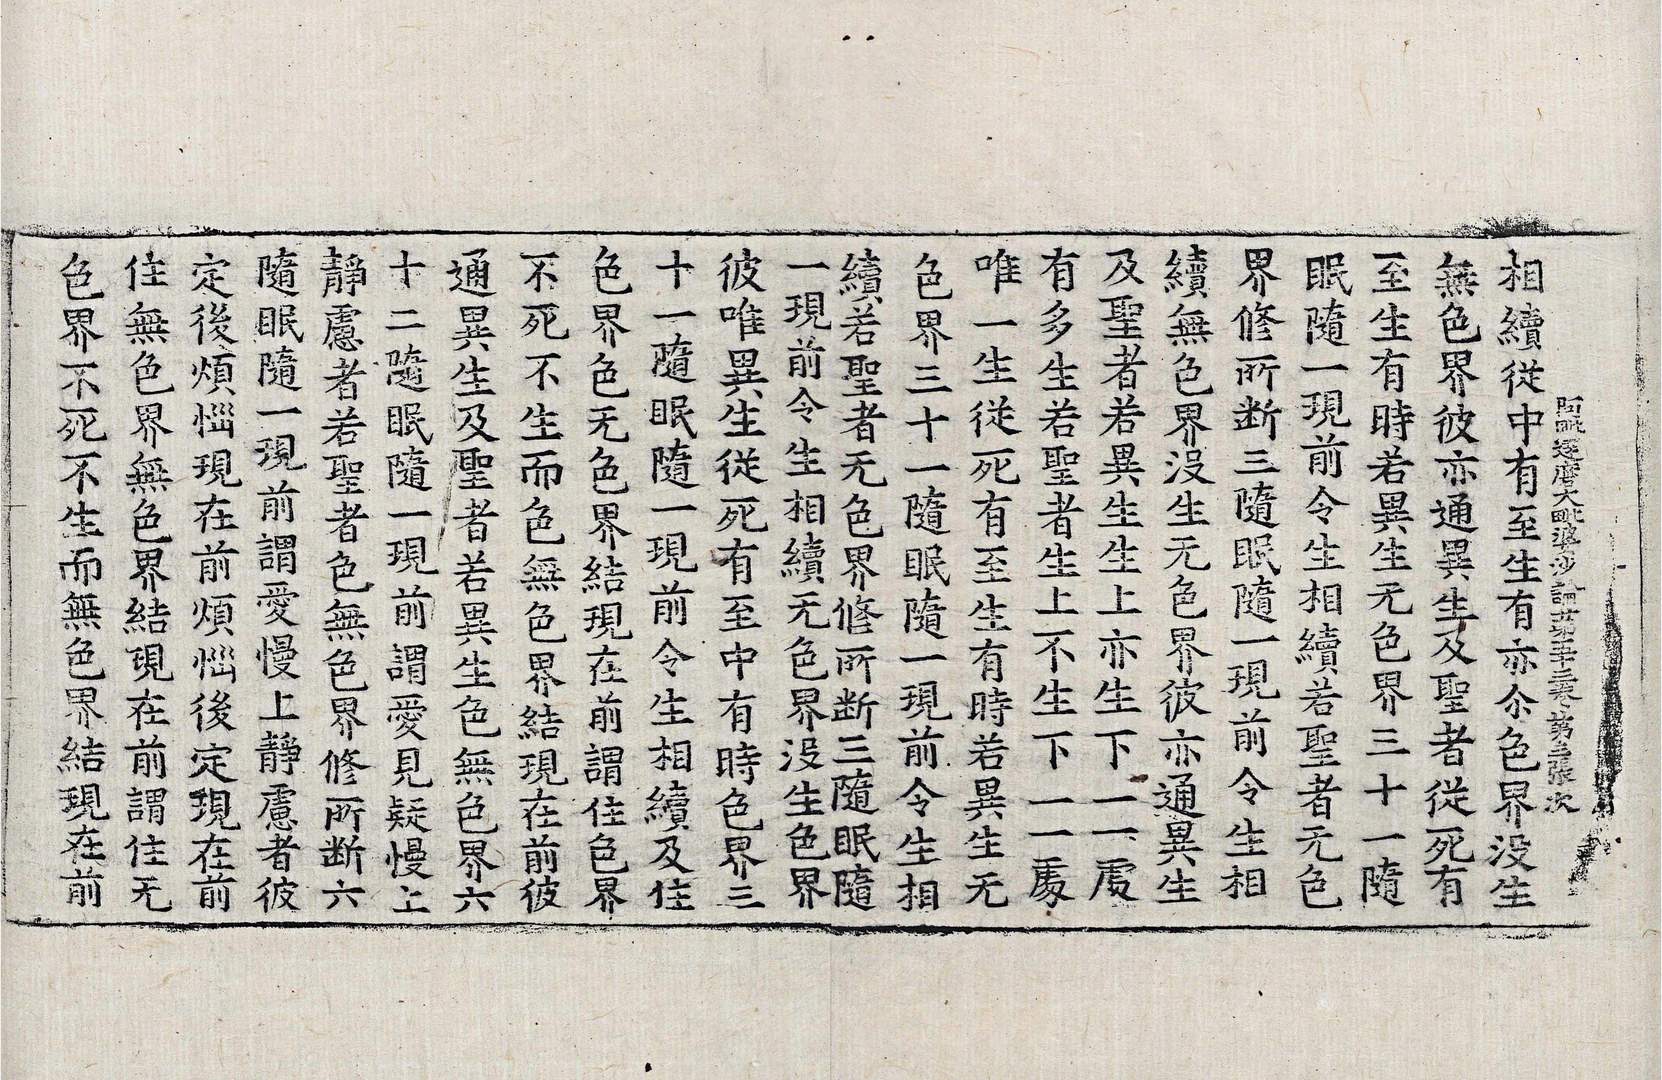 阿毗達磨大毗婆沙論第五十三卷 第張 次
相續從中有至生有亦尒色界没生
無色界彼亦通異生及聖者從死有
至生有時若異生无色界三十一隨
眠隨一現前令生相續若聖者无色
界修所断三隨眠隨一現前令生相
續無色界没生无色界彼亦通異生
及聖者若異生生上亦生下一一處
有多生若聖者生上不生下一一處
唯一生從死有至生有時若異生无
色界三十一隨眠隨一現前令生相
續若聖者无色界修所断三隨眠隨
一現前令生相續无色界没生色界
彼唯異生從死有至中有時色界三
十一隨眠隨一現前令生相續及住
色界色无色界結現在前謂住色界
不死不生而色無色界結現在前彼
通異生及聖者若異生色無色界六
十二隨眠隨一現前謂愛見疑慢上
靜慮者若聖者色無色界修所断六
隨眠隨一現前謂愛慢上靜慮者彼
定後煩惱現在前煩惱後定現在前
住無色界無色界結現在前謂住无
色界不死不生而無色界結現在前